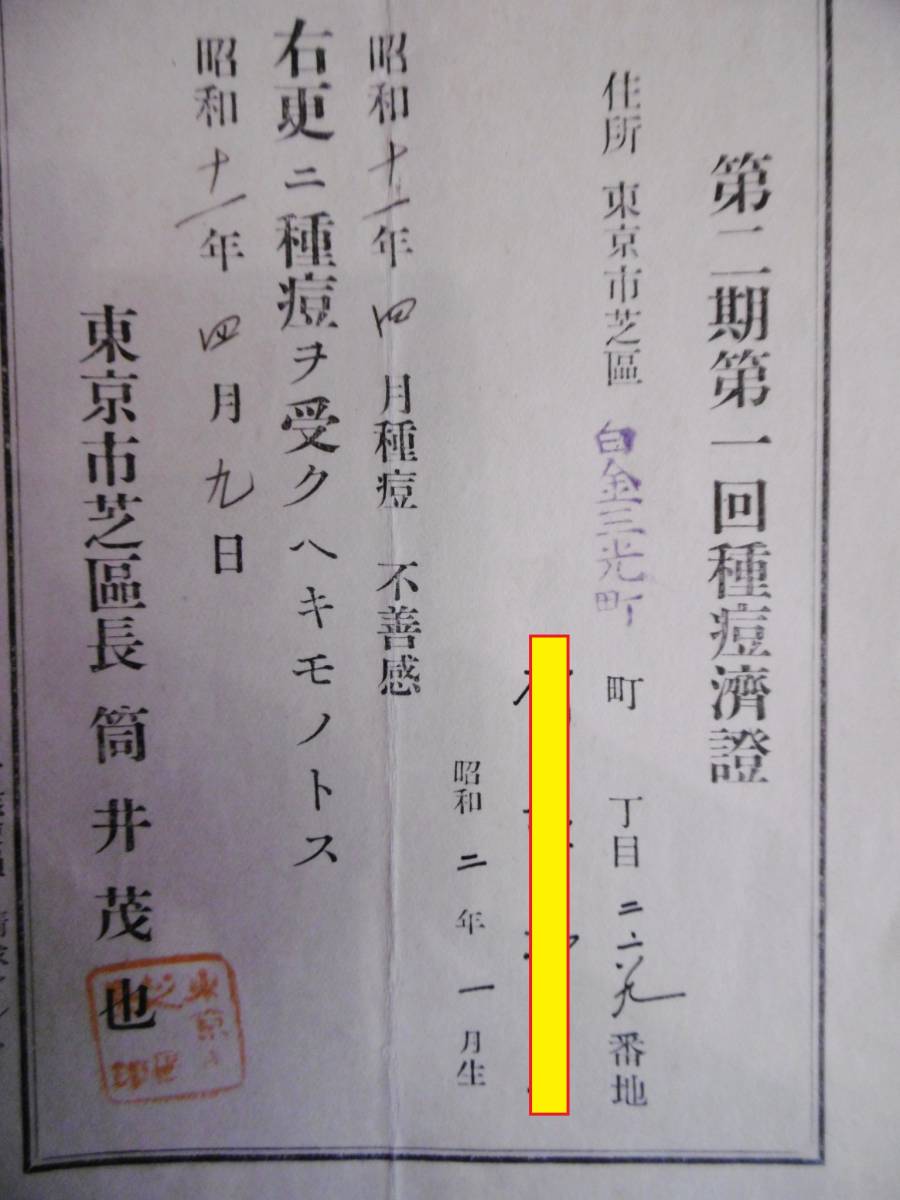 第二期第一回種痘濟證
住所 東京市芝區 白金三光町 町 丁目 二六九 番地
昭和 二 年 一 月生
昭和 十一 年 四 月種痘 不善感
右更ニ種痘ヲ受クヘキモノトス
昭和 十一 年 四 月 九 日
東京市芝區長 筒井茂也